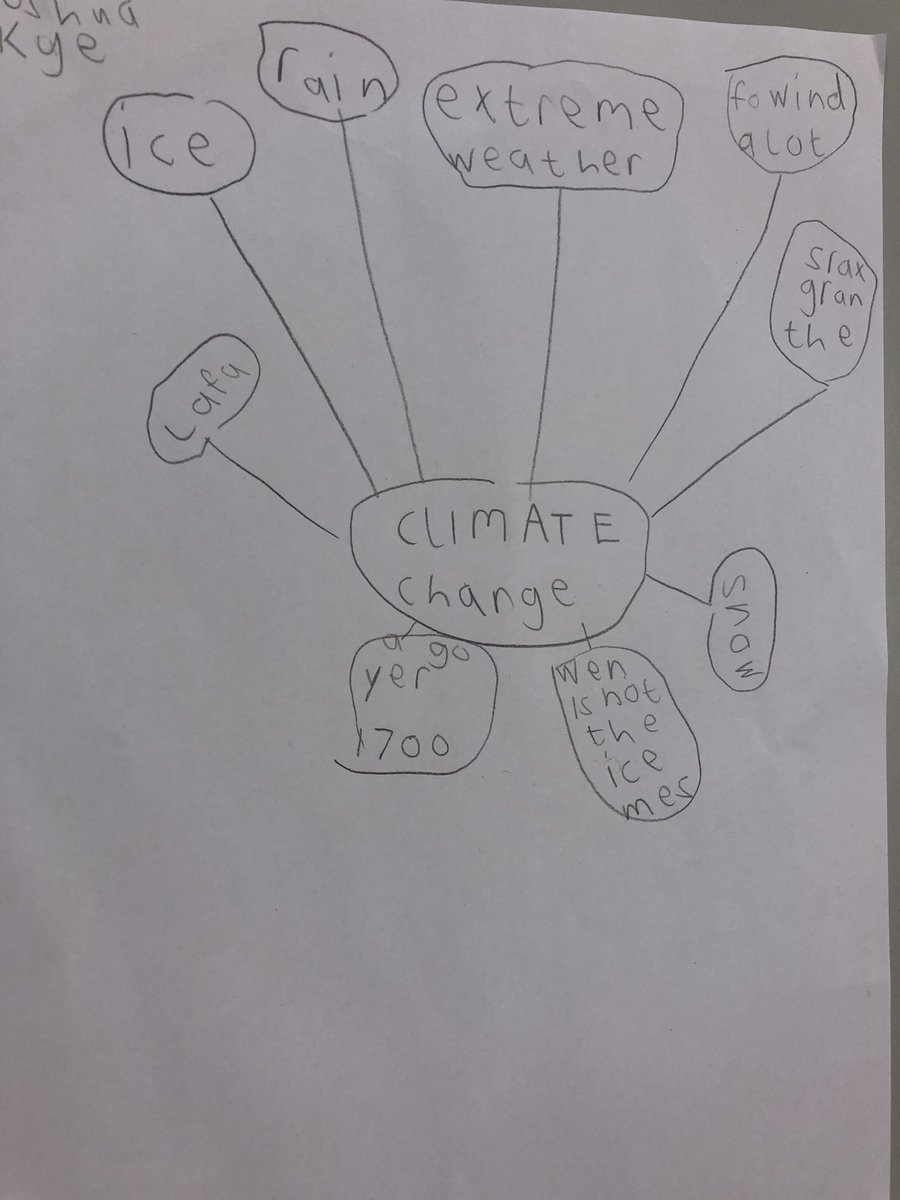 oshua
Kye
rain
ice
extreme
weather
fowind
a lot
srax
gran
the
Lafa
CLIMATE
change
snow
a go
yer
1700
wen
is not
the
ice
mes